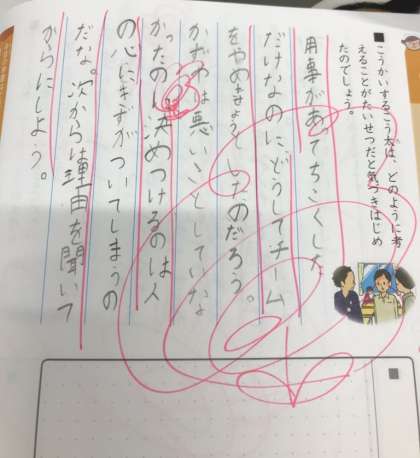 ■こうかいするこう太は、どのように考
えることがたいせつだと気づきはじめ
たのでしょう。
用事があってちこくした
だけなのにどうしてチーム
をやめさせようとしたのだろう。
かずやは悪いことしていな
かったのに決めつけるのは人
の心にきずがついてしまうの
だな。次からは理由を聞いて
からにしよう。